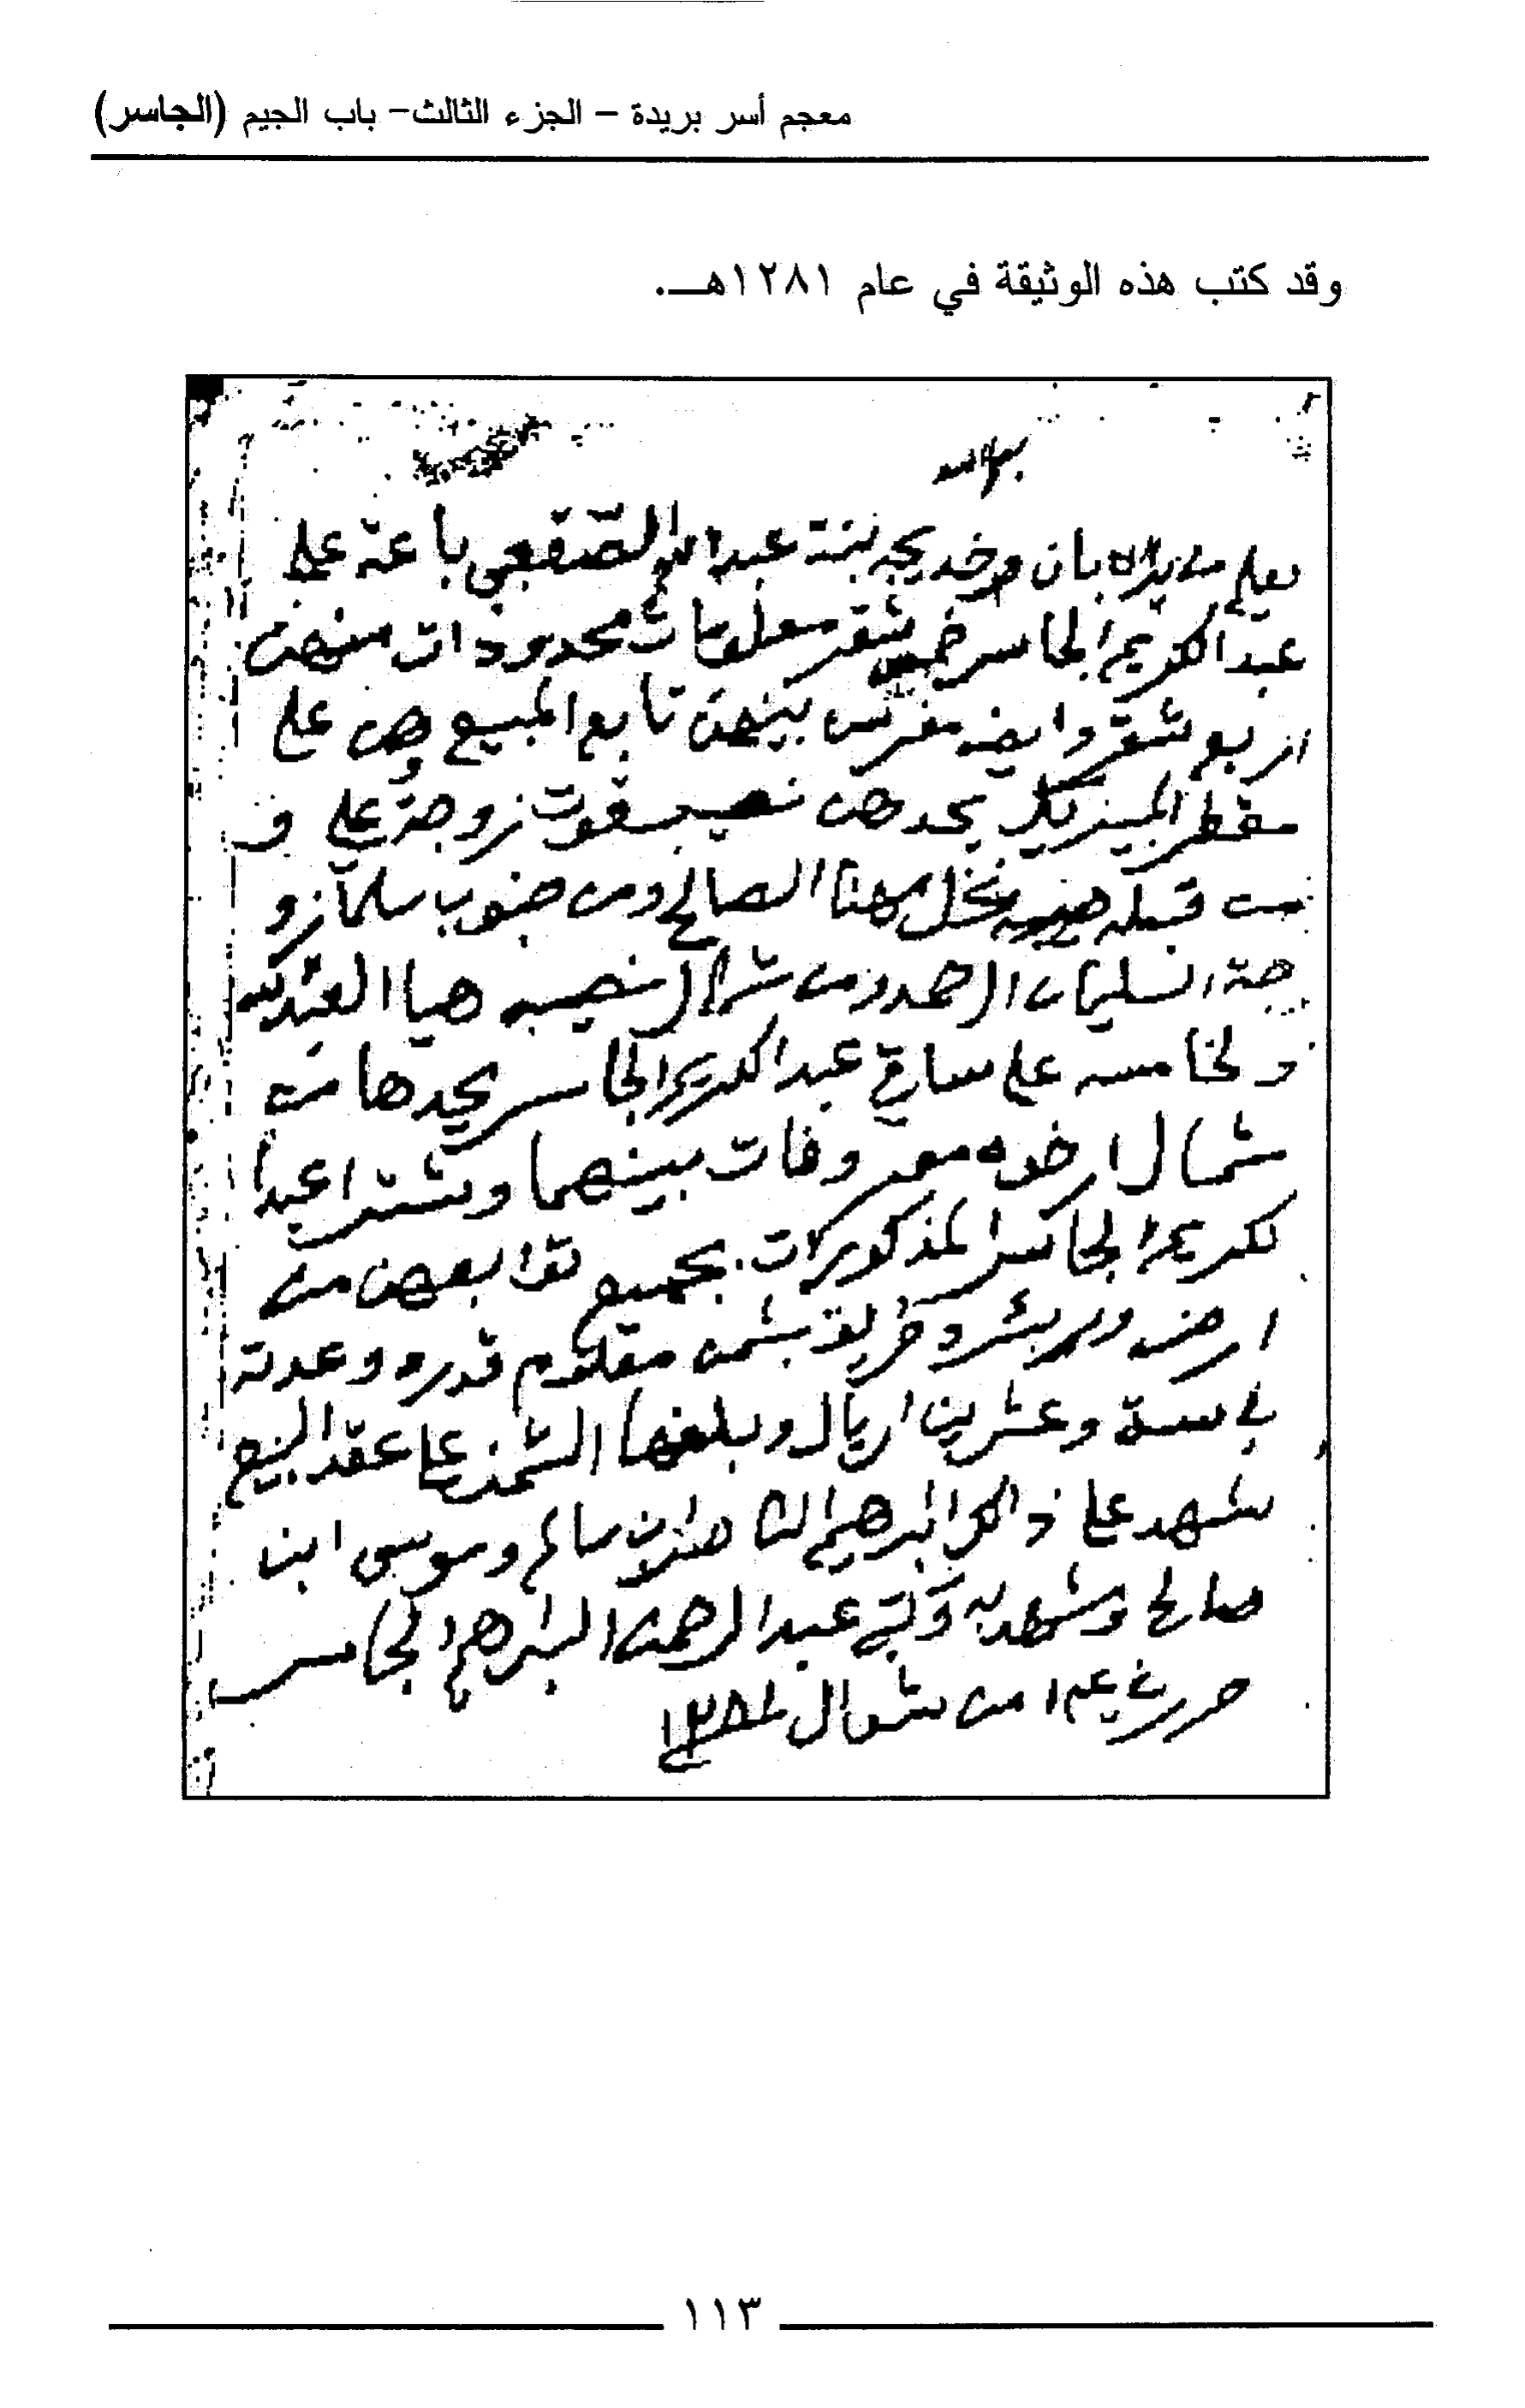 معجم أسر بريدة – الجزء الثالث– باب الجيم (الجاسر)
وقد كتب هذه الوثيقة في عام ١٢٨١هـ.
بسم الله
يعلم من يراه بان خديجه بنت عبدالله الصقعبي باعة على
عبدالكريم الجاسر خمس شقر معلومات محدودات منهن
اربع شقر وايضه مغرس بينهن تابع المبيع وهن على
يحدهن نصيب قوت زوجة علي و
من قبله نخل مهنا الصالح ومن جنوب سلما زو
جة السليمان الاحمد ومن شمال نصيب هيا
ولخامسه على ساقي عبدالكريم الجاسر يحدها من
شمال ارض معروفات بينهما وشترا عبدا
لكريم الجاسر المذكورات بجميع توابعهن من
ارض وبير وطريق بثمن معلوم قدره وعدته
ستة وعشرين اريال وبلغها الثمن على عقد البيع
شهد على ذالك ابرهيم بن سالم وموسى ابن
صالح وشهد به وكتبه عبدالرحمن البراهيم الجاسر
حرر في من شوال ١٢٨١
١١٣